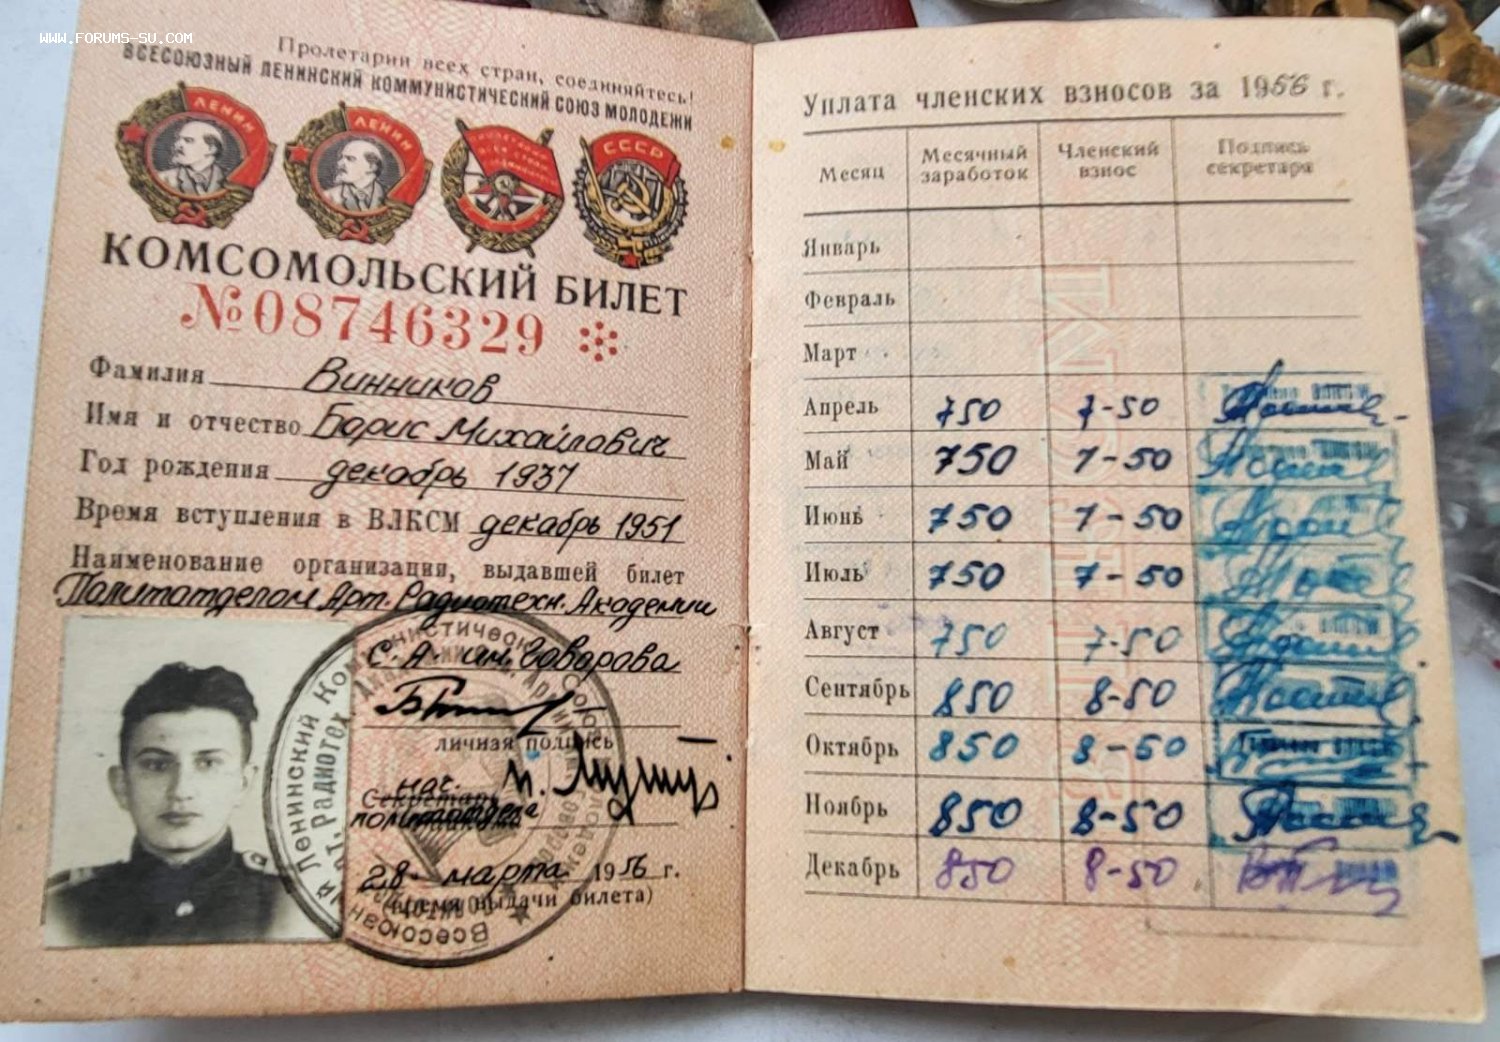 WWW.FORUMS-SU.COM
Пролетарии всех стран, соединяйтесь!
ВСЕСОЮЗНЫЙ ЛЕНИНСКИЙ КОММУНИСТИЧЕСКИЙ СОЮЗ МОЛОДЕЖИ
ЛЕНИН
ЛЕНИН
СССР
КОМСОМОЛЬСКИЙ БИЛЕТ
№08746329
Фамилия Винников
Имя и отчество Борис Михайлович
Год рождения декабрь 1937
Время вступления в ВЛКСМ декабрь 1951
Наименование организации, выдавшей билет
Политотделом Арт. Радиотехн. Академии
С.А. им. Говорова
личная подпись
нач.
Секретарь
политотдела
28 марта 1956 г.
(время выдачи билета)
Уплата членских взносов за 1956 г.
Месяц Месячный заработок Членский взнос Подпись секретаря
Январь
Февраль
Март
Апрель 750 7-50
Май 750 7-50
Июнь 750 7-50
Июль 750 7-50
Август 750 7-50
Сентябрь 850 8-50
Октябрь 850 8-50
Ноябрь 850 8-50
Декабрь 850 8-50